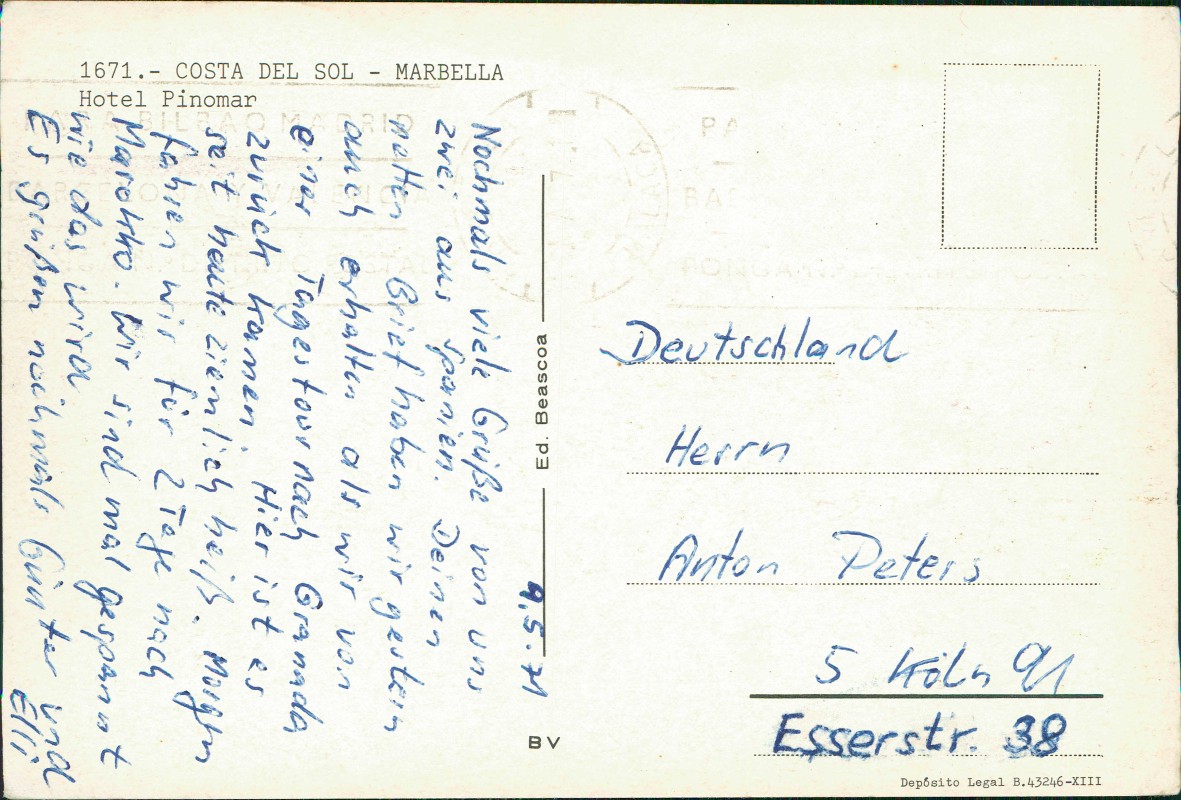 1671.- COSTA DEL SOL - MARBELLA
Hotel Pinomar
9.5.71
Nochmals viele Grüße von uns
zwei aus Spanien. Deinen
netten Brief haben wir gestern
auch erhalten als wir von
einer Tagestour nach Granada
zurück kamen. Hier ist es
seit heute ziemlich heiß. Morgen
fahren wir für 2 Tage nach
Marokko. Wir sind mal gespannt
wie das wird.
Es grüßen nochmals Günter und
Elli
Ed. Beascoa
BV
Deutschland
Herrn
Anton Peters
5 Köln 91
Esserstr. 38
Depósito Legal B.43246-XIII